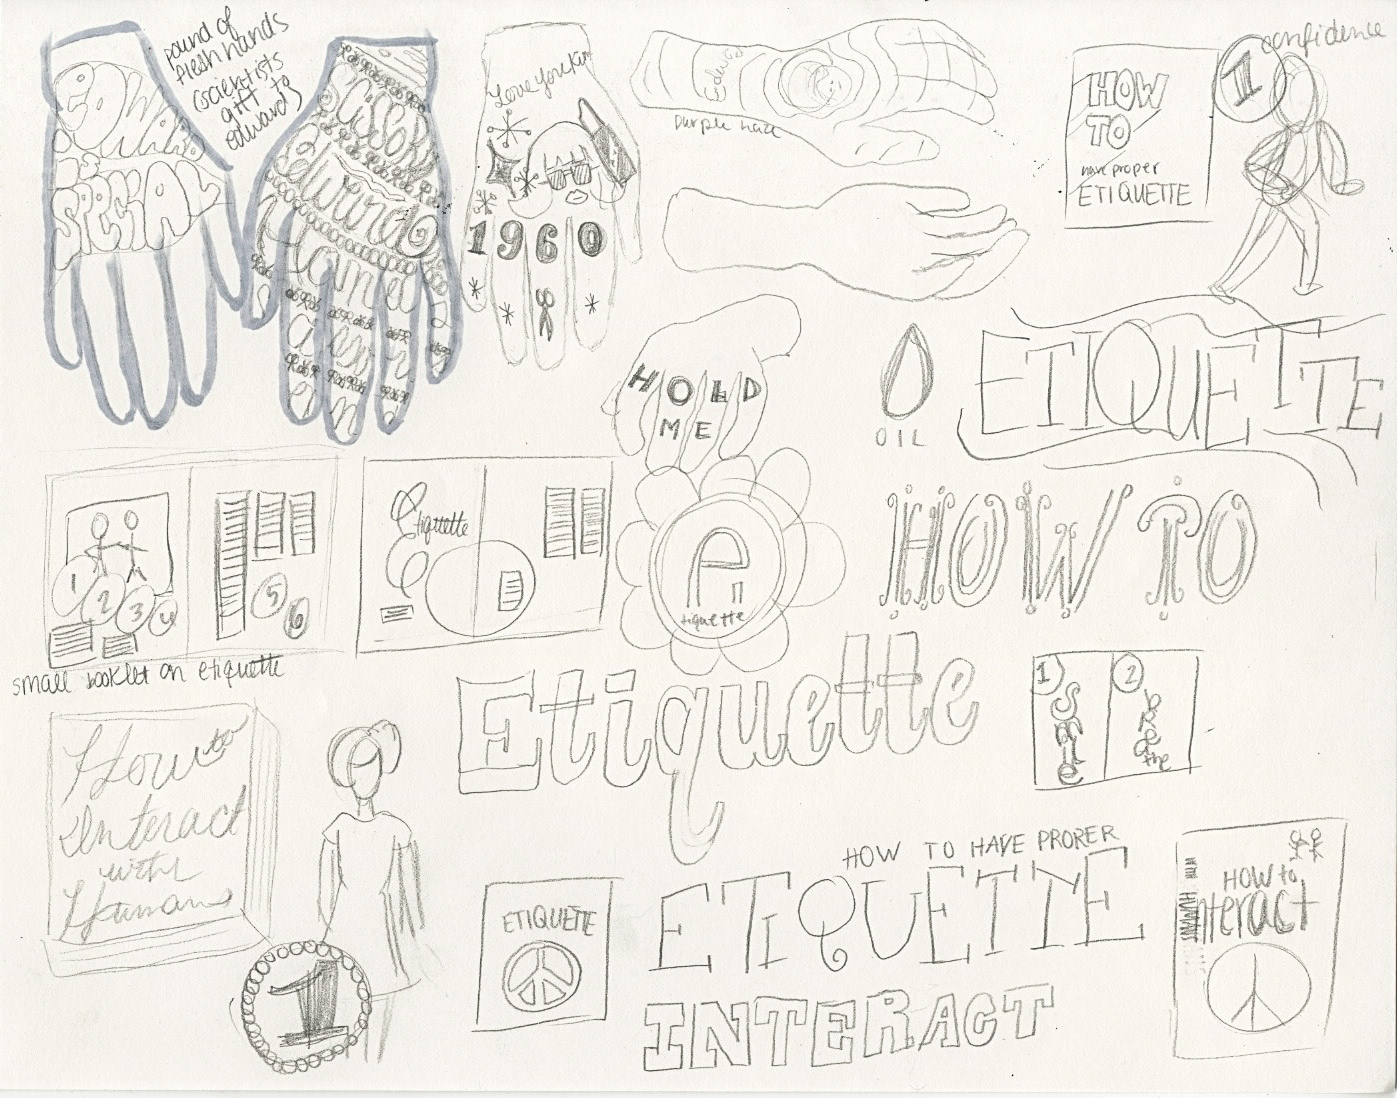 pound of
flesh hands
(scientists
gift to
edward)
EDWARD
IS
SPECiAL
SCiSSOR
Edward
Love you Kim
1960
Edward
purple haze
HOLD
ME
1
confidence
HOW
TO
have proper
ETIQUETTE
OIL
ETIQUETTE
1
2
3
4
5
6
Etiquette
small booklet on etiquette
e
tiquette
HOW TO
Etiquette
1
Smile
2
breathe
How to
Interact
with
Humans
1
ETIQUETTE
HOW TO HAVE PROPER
ETIQUETTE
INTERACT
HOW to
Interact
WITH HUMANS